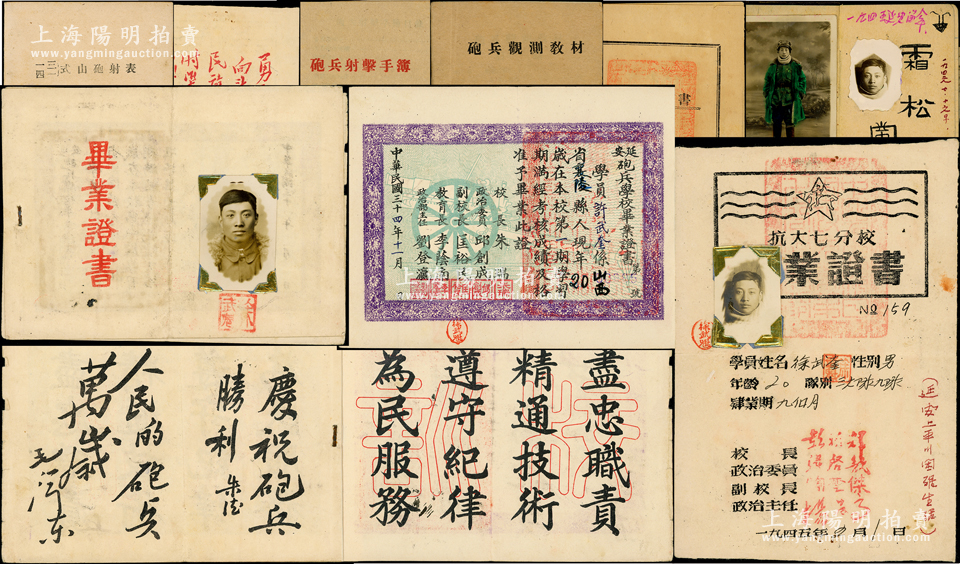 上海陽明拍賣
www.yangmingauction.com
四一三式山砲射表
勇
向
民
砲兵射擊手簿
砲兵觀測教材
書
霜松
一九四九、十、十九
畢業證書
延安砲兵學校畢業證書
第 號
學員許武奎係山西
省襄陵縣人現年20
歲在本校第一期學習
期滿經考核成績及格
准予畢業此證
校長朱
政治委員邱創成
副校長匡裕民
教育長李蔭南
政治部主任劉登瀛
中華民國三十四年十一月
抗大七分校
業證書
No 159
學員姓名徐武奎性別男
年齡20 隊別三大隊九隊
肄業期九個月
校長
政治委員
副校長
政治主任
一九四五年9月1日
慶祝砲兵
勝利 朱德
人民的砲兵
萬歲
毛澤東
盡忠職責
精通技術
遵守紀律
為民服務
上海陽明拍賣
www.yangmingauction.com